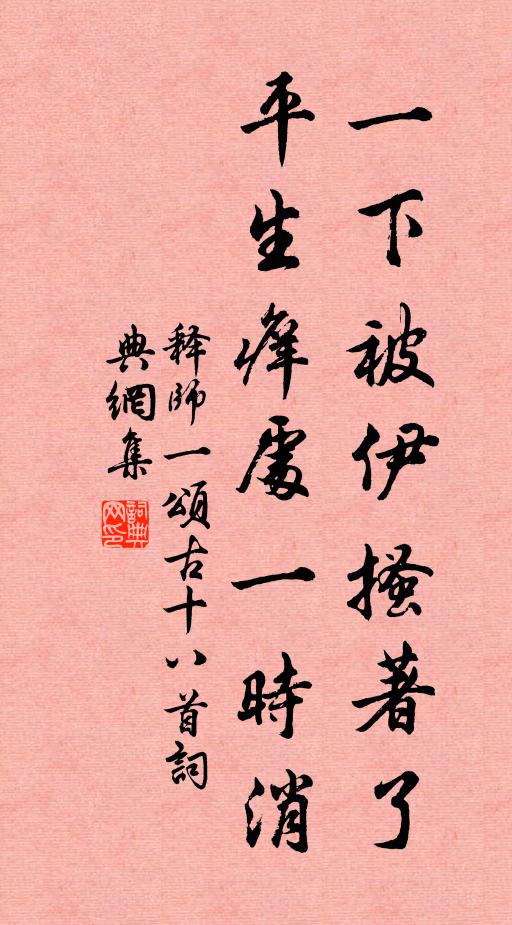 一下被伊搔著了
平生癢處一時消
释師一頌古十八首詞
典網集
詞典网印